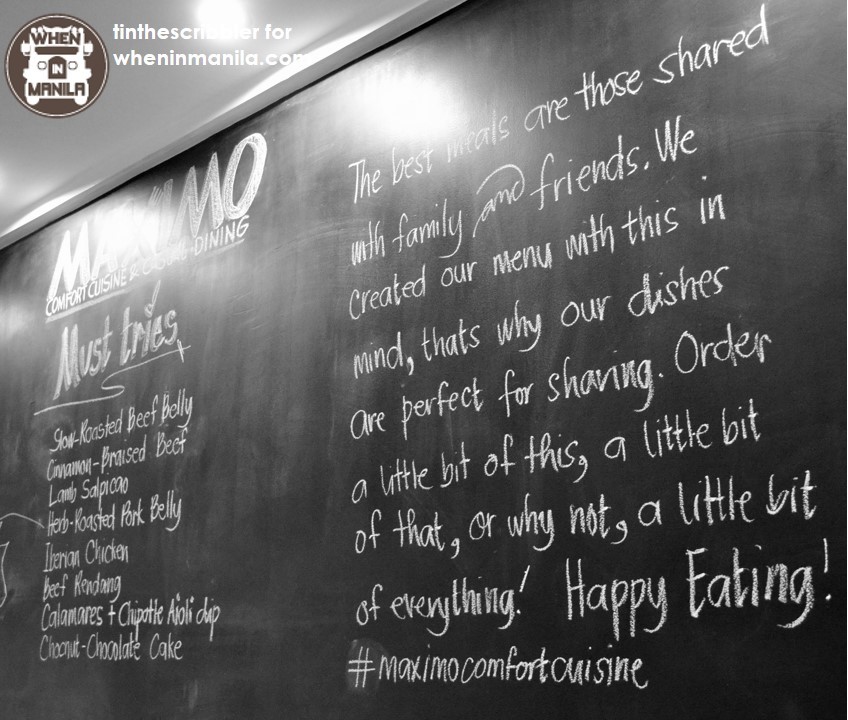 WHEN
IN
MANILA
tinthescribbler for
wheninmanila.com
MAXIMO
COMFORT CUISINE & CASUAL DINING
Must tries
Slow-Roasted Beef Belly
Cinnamon-Braised Beef
Lamb Salpicao
Herb-Roasted Pork Belly
Iberian Chicken
Beef Rendang
Calamares + Chipotle Aioli dip
Choconut-Chocolate Cake
The best meals are those shared
with family and friends. We
created our menu with this in
mind, thats why our dishes
are perfect for sharing. Order
a little bit of this, a little bit
of that, or why not, a little bit
of everything! Happy Eating!
#maximocomfortcuisine